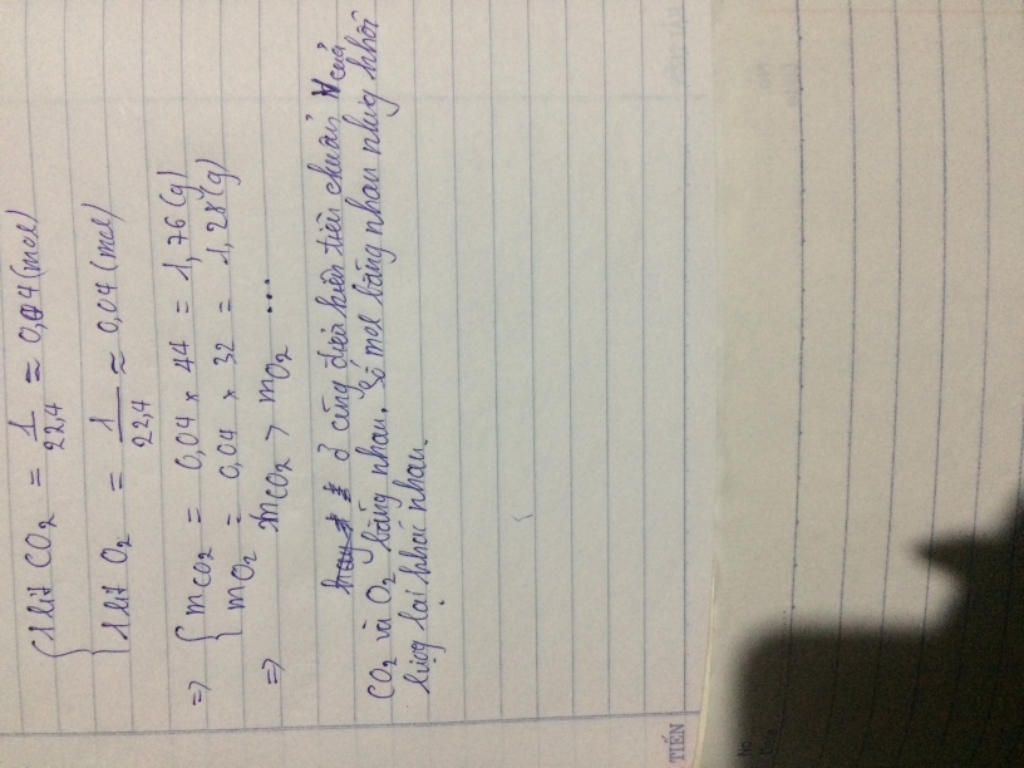 1 lít CO2 = 1/22,4 ≈ 0,04 (mol)
1 lít O2 = 1/22,4 ≈ 0,04 (mol)
=> { mCO2 = 0,04 × 44 = 1,76 (g)
mO2 = 0,04 × 32 = 1,28 (g)
=> mCO2 > mO2 ...
ở cùng điều kiện tiêu chuẩn, V của
CO2 và O2 bằng nhau. Số mol bằng nhau nhưng khối
lượng lại khác nhau.
TIẾN